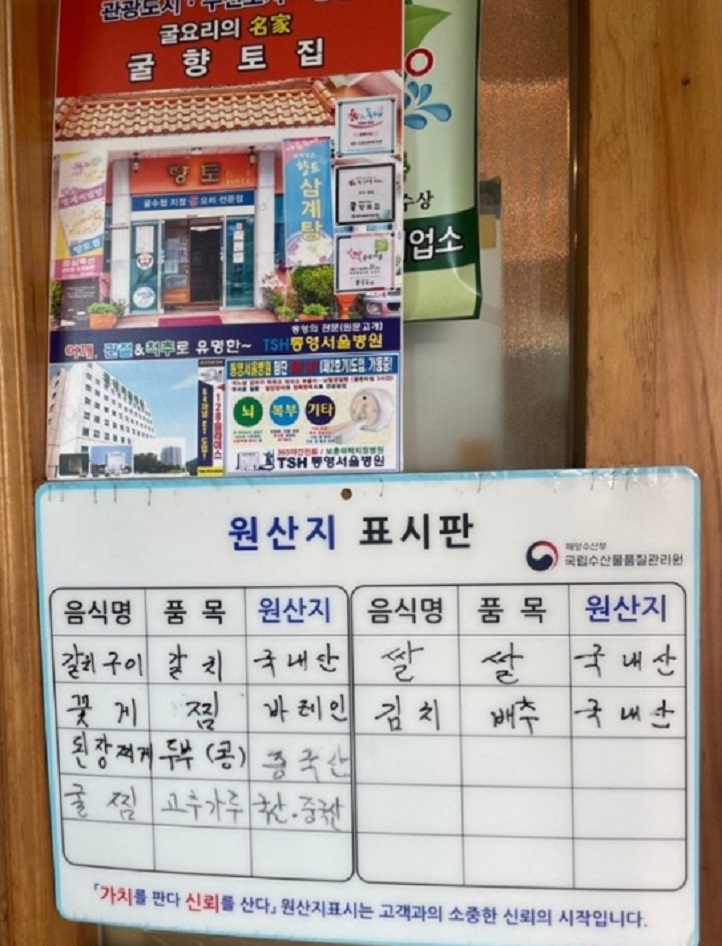 관광도시
굴요리의 名家
굴 향 토 집
향토
굴수협 지정 요리 전문점
향토
삼계탕
수상
업소
통영의 관문(원문고개)
어깨, 관절&척추로 유명한~ TSH통영서울병원
통영서울병원 첨단 (제2호기)도입, 가동중!
뇌 복부 기타
365야간진료 / 보훈위탁지정병원
TSH 통영서울병원
원산지 표시판
해양수산부
국립수산물품질관리원
음식명 품 목 원산지 음식명 품 목 원산지
갈치구이 갈치 국내산 쌀 쌀 국내산
꽃게 찜 바레인 김치 배추 국내산
된장찌게 두부(콩) 중국산
굴찜 고추가루 국산.중국산
「가치를 판다 신뢰를 산다」 원산지표시는 고객과의 소중한 신뢰의 시작입니다.